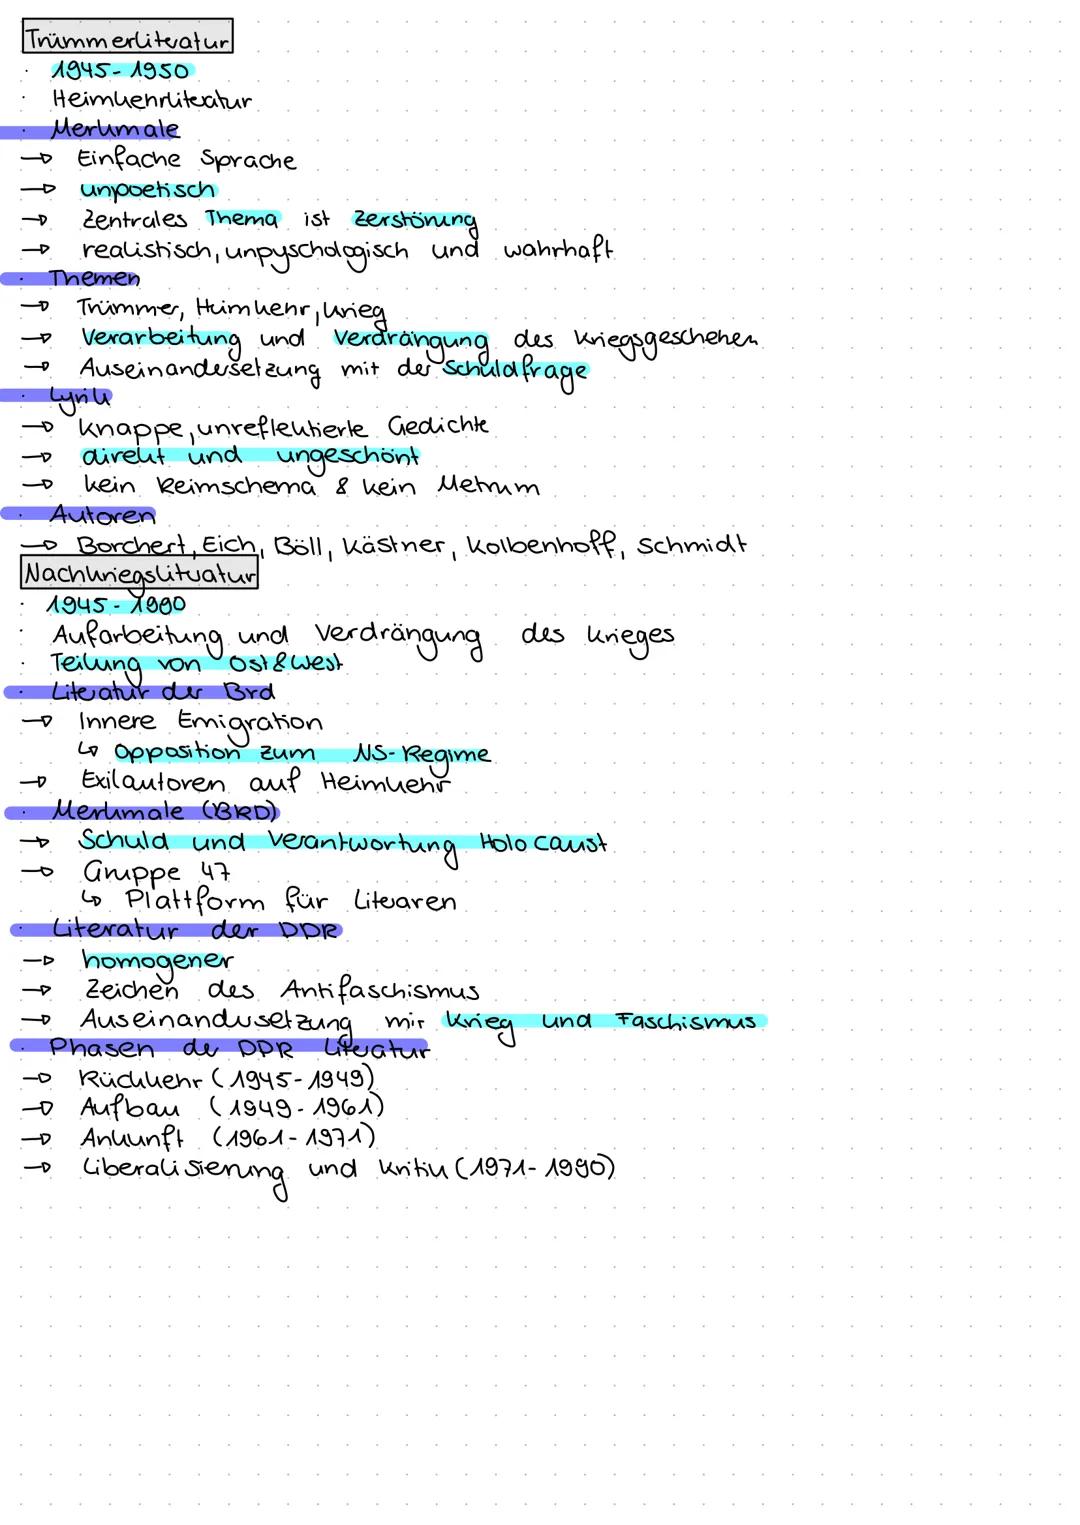 Trümmerliteratur
· 1945-1950
· Heimkehrliteratur
· Merkmale
→ Einfache Sprache
→ unpoetisch
→ Zentrales Thema ist Zerstörung
→ realistisch, unpyschologisch und wahrhaft
· Themen
→ Trümmer, Heimkehr, Krieg
→ Verarbeitung und Verdrängung des Kriegsgeschehen
→ Auseinandersetzung mit der Schuldfrage
· Lyrik
→ knappe, unreflektierte Gedichte
→ direkt und ungeschönt
→ kein Reimschema & kein Metrum
· Autoren
→ Borchert, Eich, Böll, Kästner, Kolbenhoff, Schmidt
Nachkriegsliteratur
· 1945-1990
· Aufarbeitung und Verdrängung des Krieges
· Teilung von Ost & West
· Literatur der Brd
→ Innere Emigration
↳ Opposition zum NS-Regime
→ Exilautoren auf Heimkehr
· Merkmale (BRD)
→ Schuld und Verantwortung Holocaust
→ Gruppe 47
↳ Plattform für Literaren
· Literatur der DDR
→ homogener
→ Zeichen des Antifaschismus
→ Auseinandersetzung mir Krieg und Faschismus
· Phasen der DDR Literatur
→ Rückkehr (1945-1949)
→ Aufbau (1949-1961)
→ Ankunft (1961-1971)
→ Liberalisierung und Kritik (1971-1990)